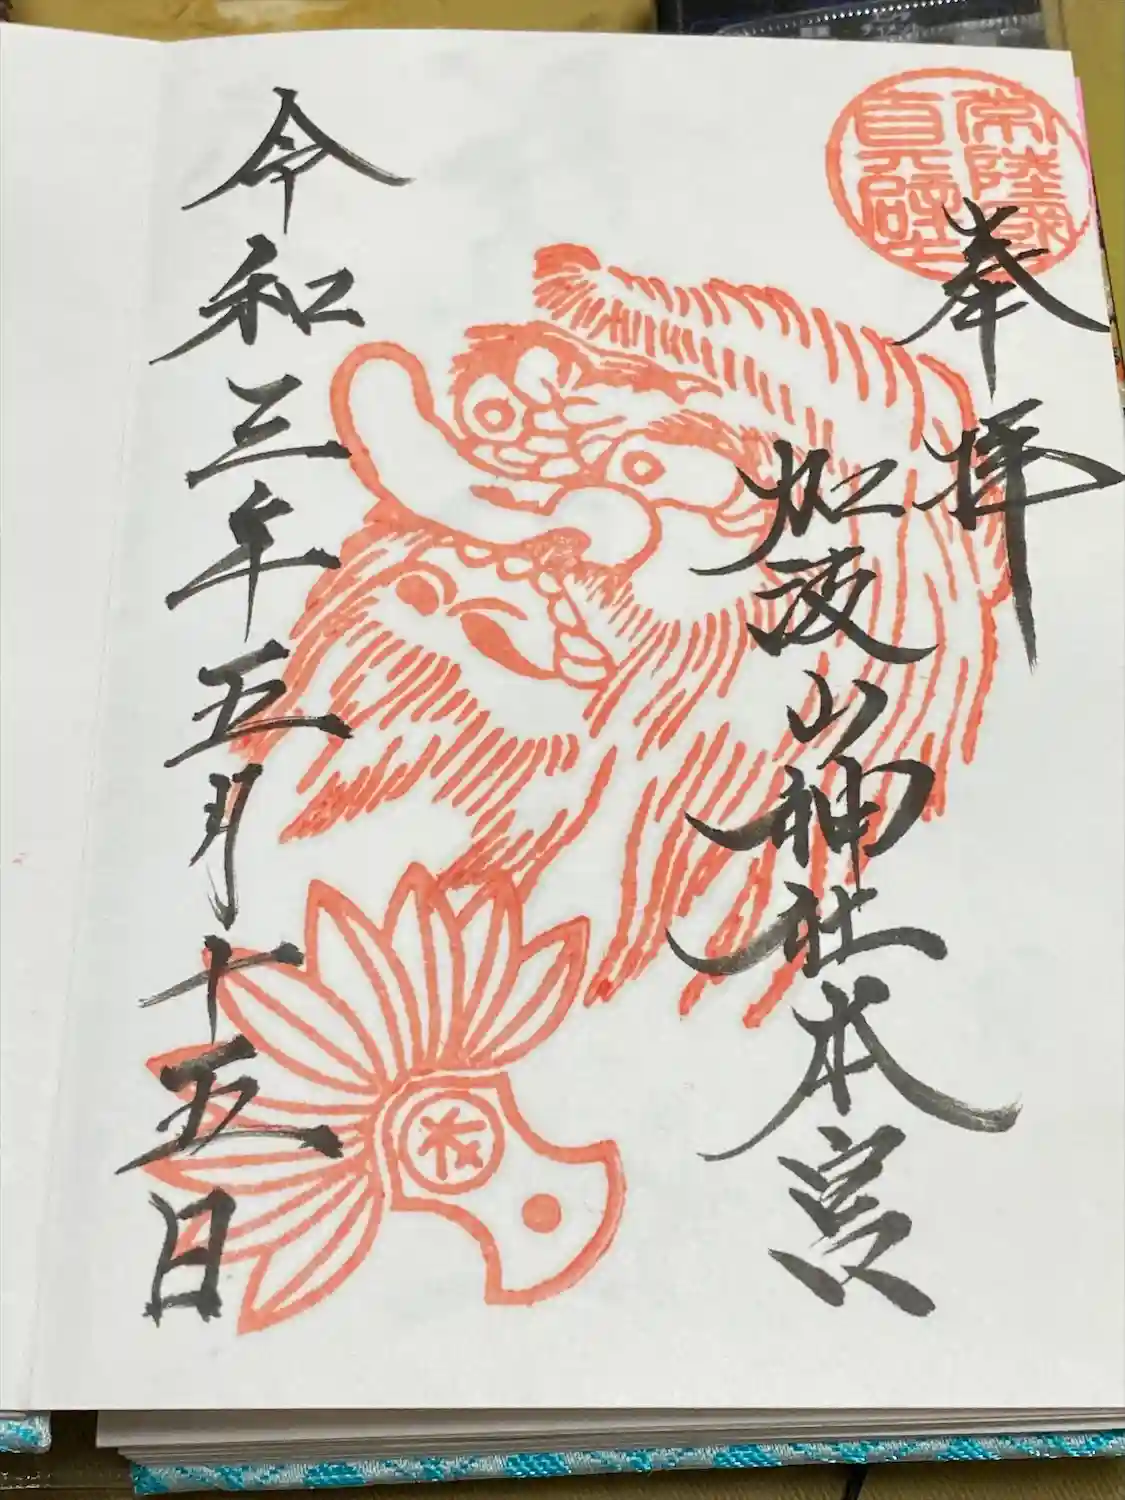 奉拝
常陸國
真壁
加波山神社本宮
令和三年五月十五日